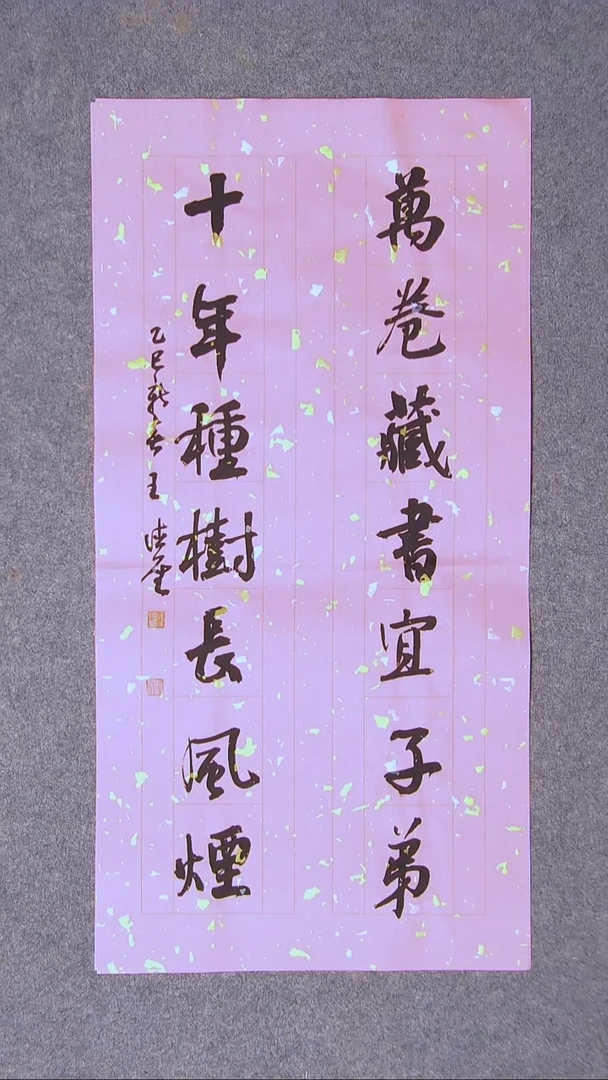 萬卷藏書宜子弟
十年種樹長風煙
乙巳新春王